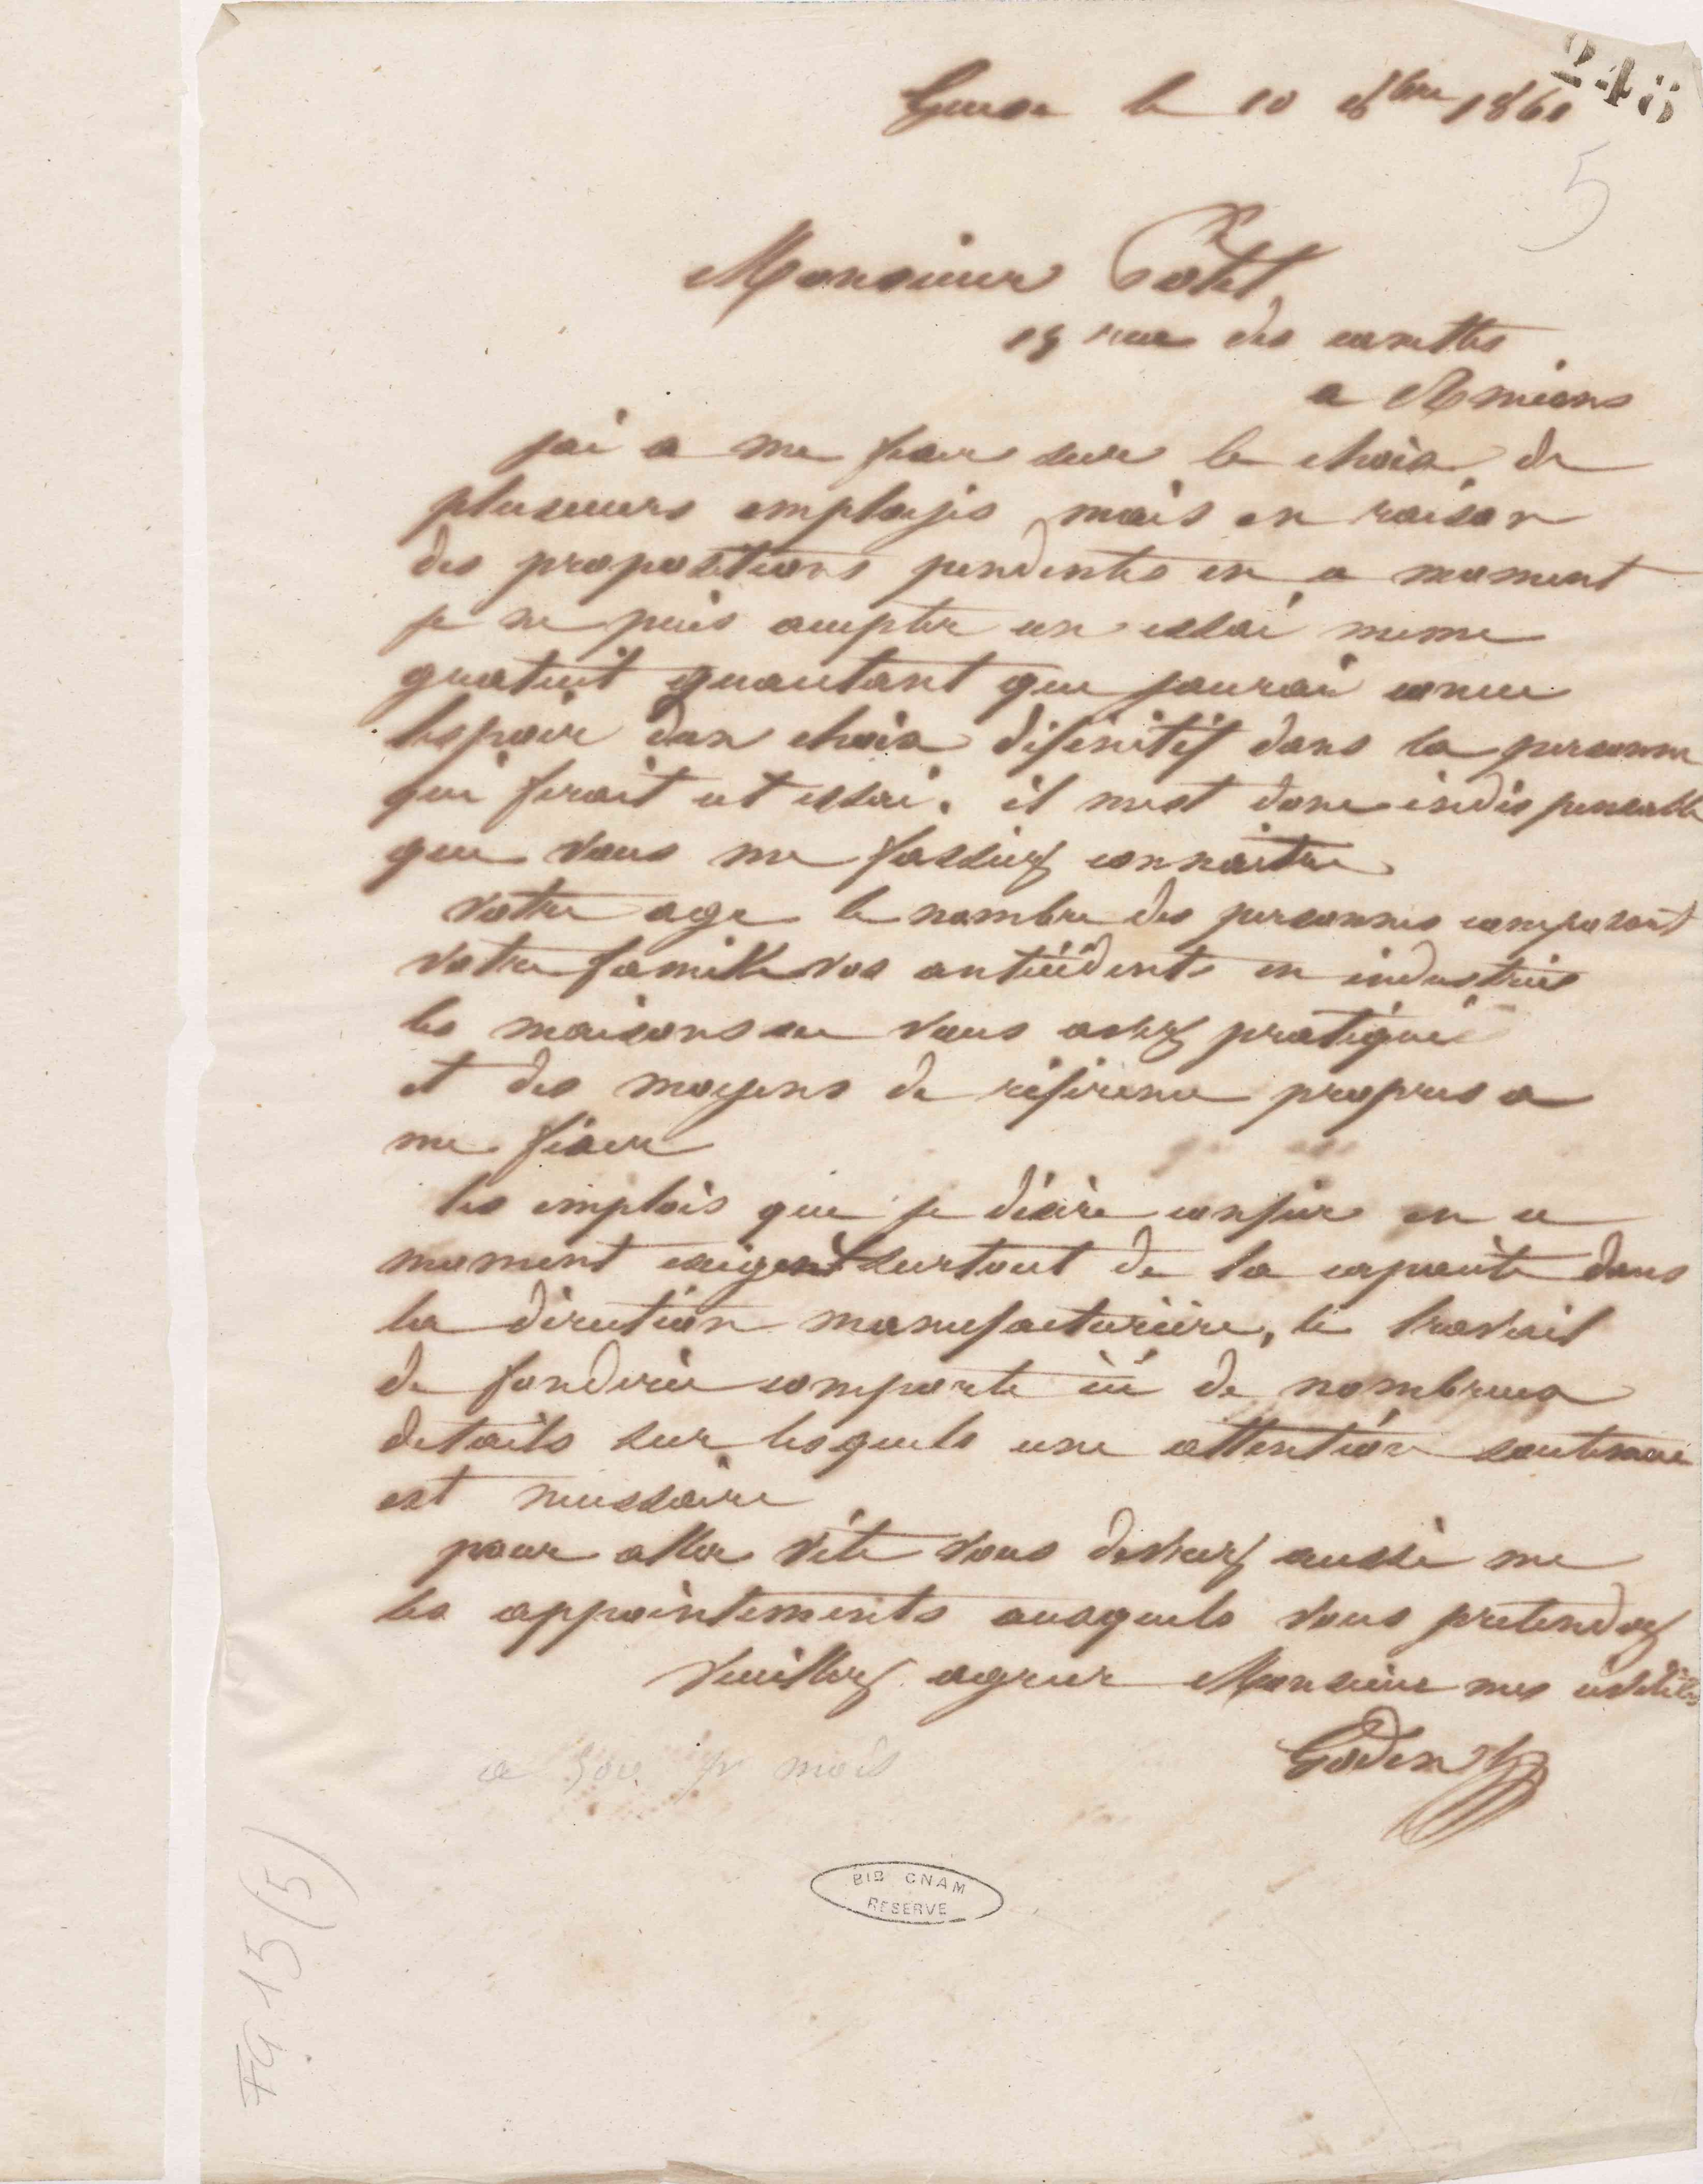 248
Guise le 10 8bre 1861
5
Monsieur Potel
19 rue des
a Amiens
jai a me fixer sur le choix de
plusieurs employés mais en raison
des propositions pendentes en ce moment
je ne puis accepter un essai meme
gratuit quautant que jaurai concu
lespoir dun choix définitif dans la personne
qui ferait cet essai. il mest donc indispensable
que vous me fassiez connaitre
votre age le nombre des personnes composant
votre famille vos antécédents en industrie
les maisons ou vous avez pratiqué
et des moyens de réference propres a
me fixer
les emplois que je désire confier en ce
moment exigent surtout de la capacité dans
la direction manufacturière, le travail
de fonderie comporte ici de nombreux
details sur lesquels une attention soutenue
est necessaire
pour aller vite vous devrez aussi me
les appointements auxquels vous pretendez
Veuillez agreer Monsieur mes civilités
Godin
a mois
BIB CNAM
RESERVE
FG 15 (5)